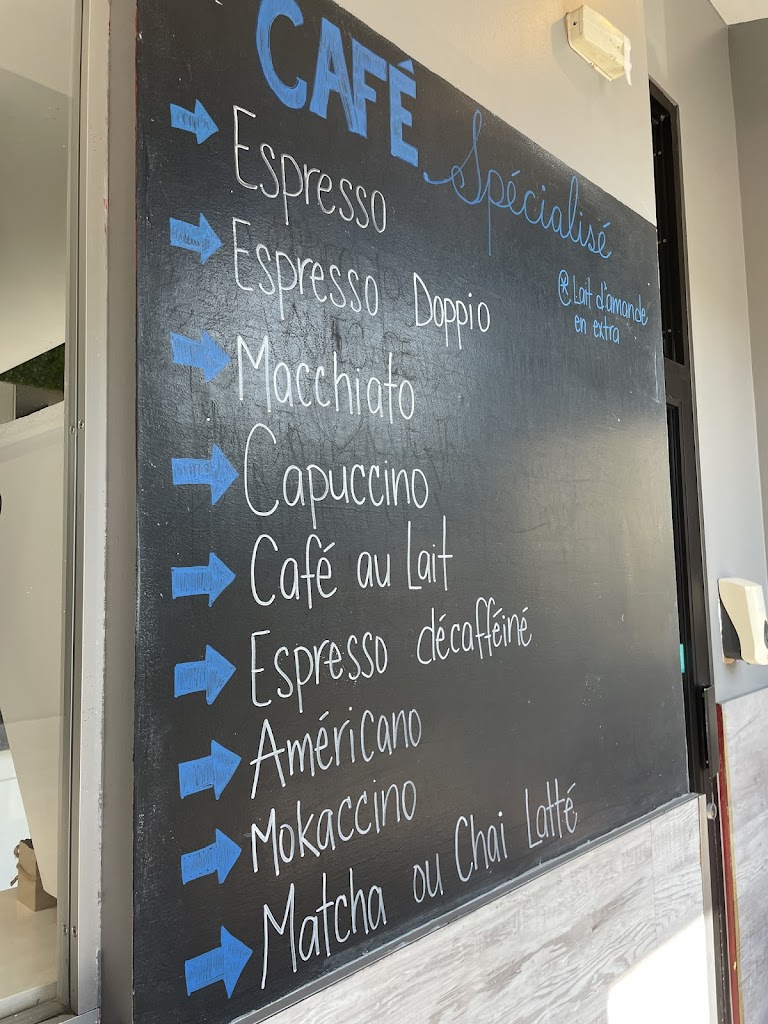 CAFÉ
Spécialisé
Espresso
Espresso Doppio
* Lait d'amande
en extra
Macchiato
Capuccino
Café au Lait
Espresso décafféiné
Américano
Mokaccino
Matcha ou Chai Latté